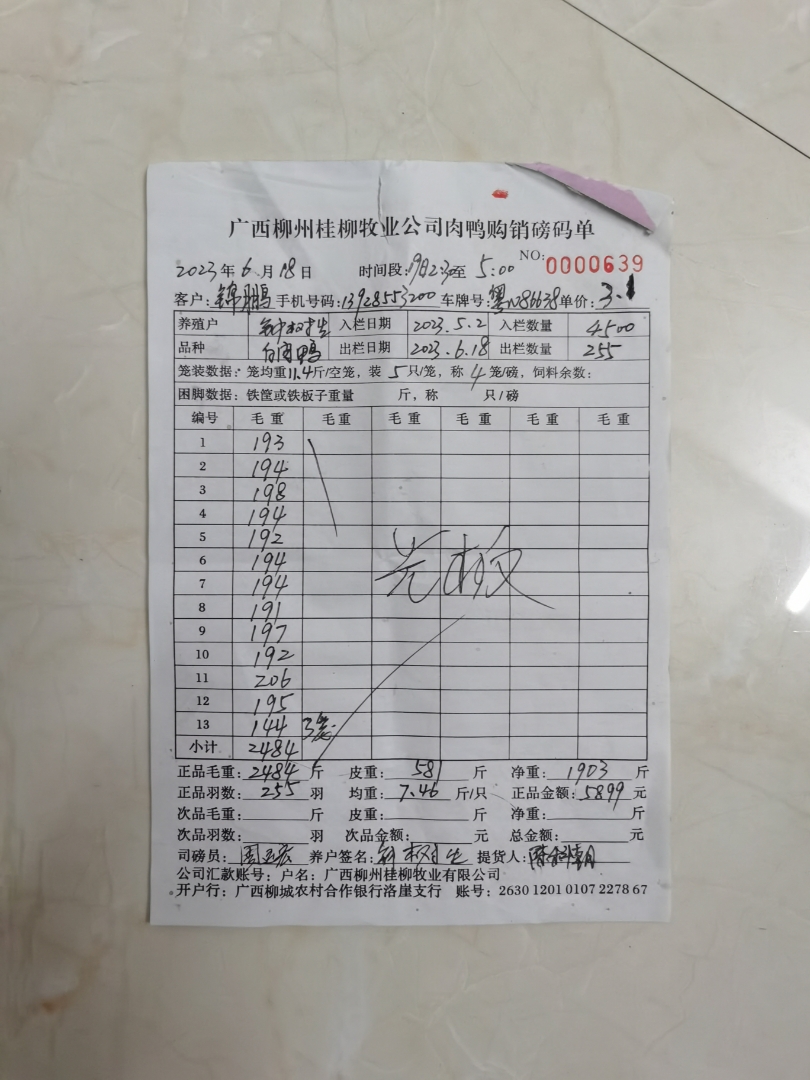 广西柳州桂柳牧业公司肉鸭购销磅码单
NO: 0000639
2023年6月18日 时间段: 至 5:00
客户: 锦鹏 手机号码: 13928553200 车牌号: 粤N86638 单价: 3.1
养殖户 钟树生 入栏日期 2023.5.2 入栏数量 4500
品种 白肉鸭 出栏日期 2023.6.18 出栏数量 255
笼装数据: 笼均重11.4斤/空笼, 装5只/笼, 称4笼/磅, 饲料余数:
困脚数据: 铁筐或铁板子重量 斤, 称 只/磅
编号 毛重 毛重 毛重 毛重 毛重 毛重
1 193
2 194
3 198
4 194
5 192
6 194
7 194
8 191
9 197
10 192
11 206
12 195
13 144 3笼
小计 2484
正品毛重: 2484 斤 皮重: 581 斤 净重: 1903 斤
正品羽数: 255 羽 均重: 7.46 斤/只 正品金额: 5899 元
次品毛重: 斤 皮重: 斤 净重: 斤
次品羽数: 羽 次品金额: 元 总金额: 元
司磅员: 养户签名: 钟树生 提货人:
公司汇款账号: 户名: 广西柳州桂柳牧业有限公司
开户行: 广西柳城农村合作银行洛崖支行 账号: 2630 1201 0107 2278 67